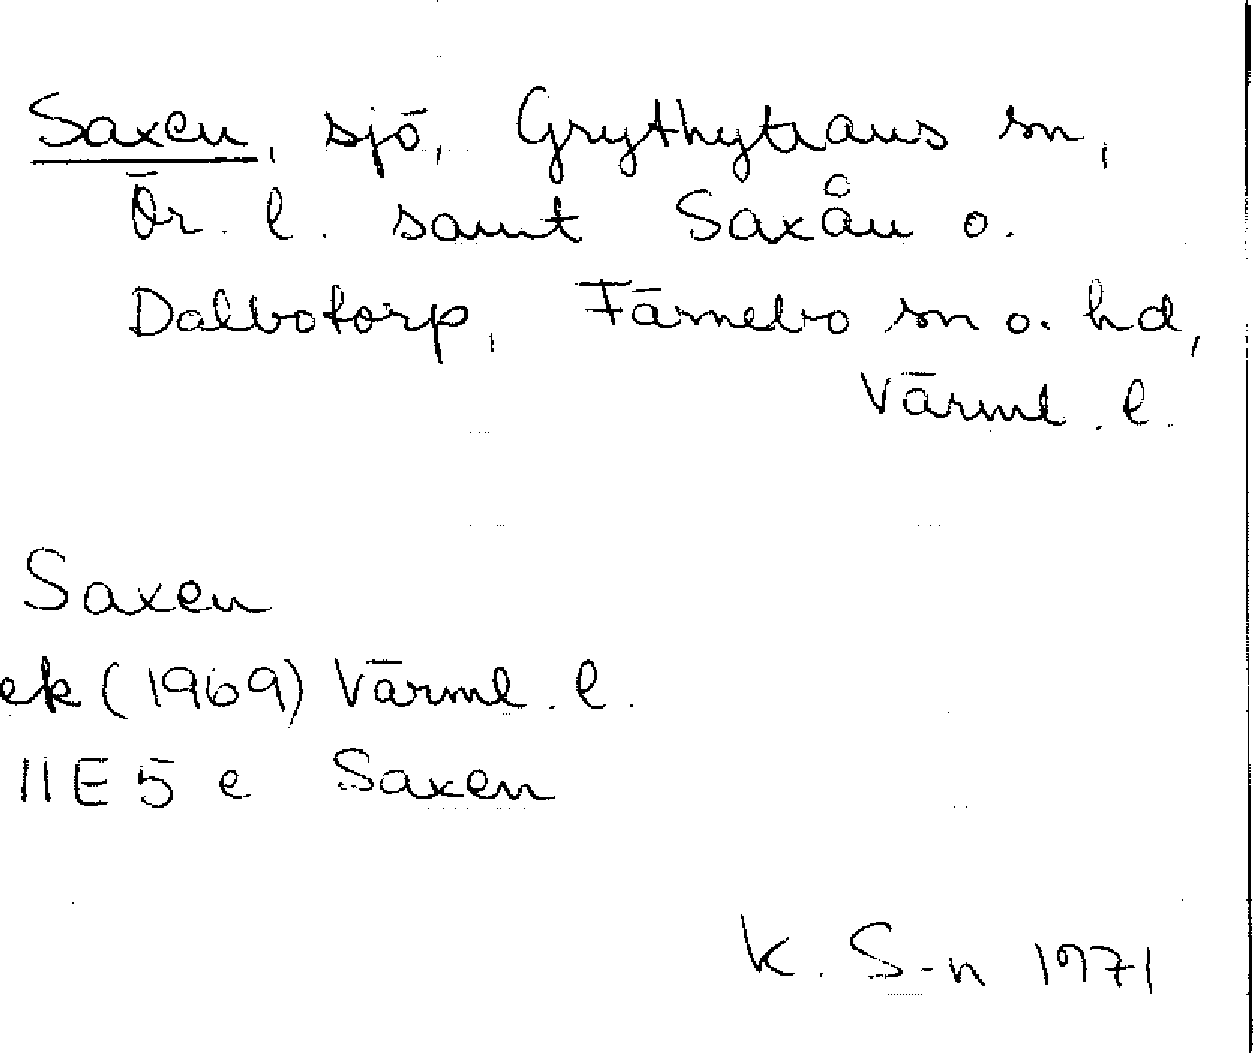 Saxen, sjö, Grythyttans sn,
Ör. l. samt Saxån o.
Dalbotorp, Färnebo sn o. hd,
Värml. l.
Saxen
ek (1969) Värml. l.
11E 5 e Saxen
K. S-n 1971